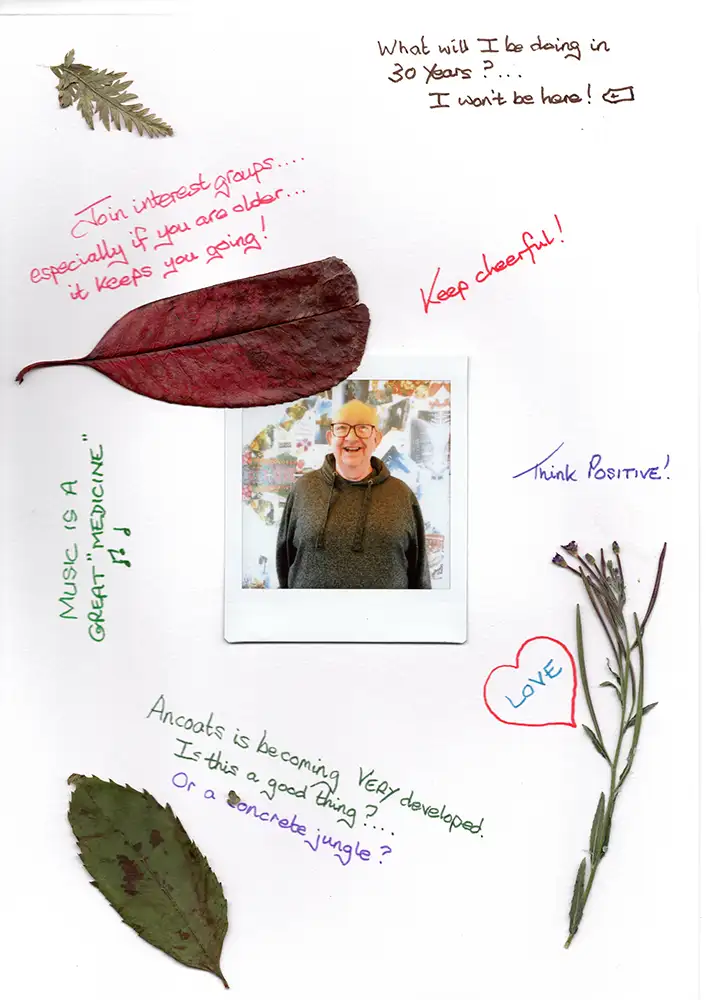 What will I be doing in
30 Years?...
I won't be here!
Join interest groups....
especially if you are older...
it keeps you going!
Keep cheerful!
MUSIC IS A
GREAT "MEDICINE"
Think POSITIVE!
LOVE
Ancoats is becoming VERY developed.
Is this a good thing?...
Or a concrete jungle?